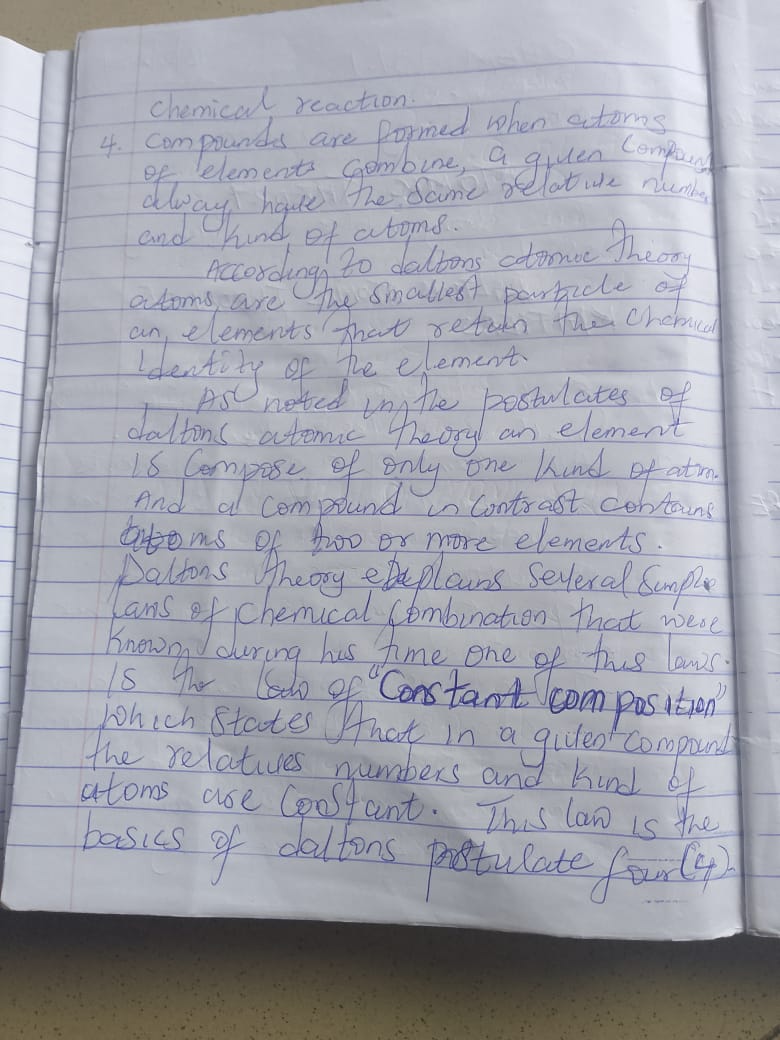 chemical reaction.
4. Compounds are formed when atoms
of elements combine, a given Compound
alway have the same relative number
and kind of atoms.
According to daltons atomic theory
atoms are the smallest particle of
an elements that retain the chemical
identity of the element.
As noted in the postulates of
daltons atomic theory an element
is compose of only one kind of atom.
And a compound in contrast contains
atoms of two or more elements.
Daltons theory explains several simple
laws of chemical combination that were
known during his time one of this laws.
is the law of "Constant composition"
which states that in a given compound
the relatives numbers and kind of
atoms are constant. This law is the
basics of daltons postulate four (4)